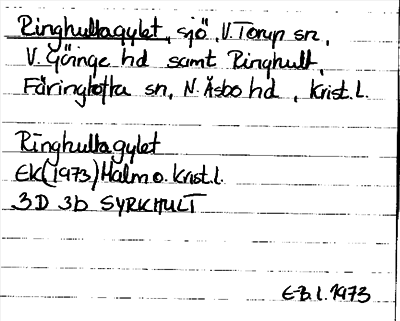 Ringhultagylet, sjö, V. Torup sn,
V. Göinge hd samt Ringhult,
Färingtofta sn, N. Åsbo hd, Krist. l.
Ringhultagylet
EK (1973) Halm o. Krist. l.
3D 3b SYRKHULT
E-B. l. 1973